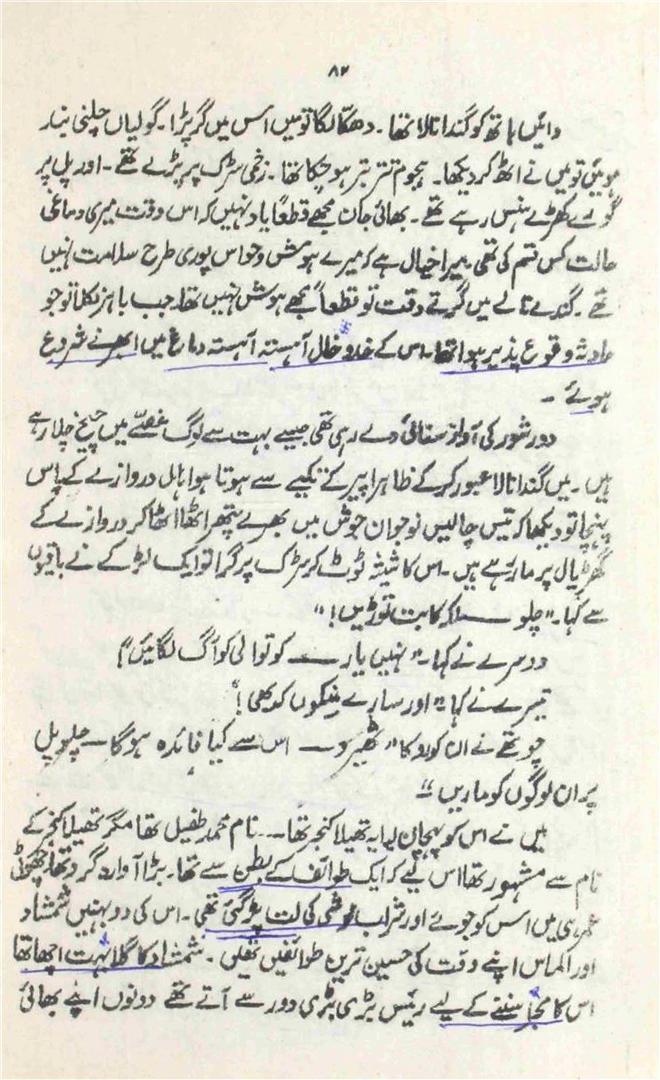 ۸۲
دائیں ہاتھ کو گندا نالا تھا۔ دھکّا لگا تو میں اس میں گر پڑا۔ گولیاں چلنی بند
ہوئیں تو میں نے اٹھ کر دیکھا۔ ہجوم تتر بتر ہو چکا تھا۔ زخمی سڑک پر پڑے تھے۔ اور پل پر
گورے کھڑے ہنس رہے تھے۔ بھائی جان مجھے قطعاً یاد نہیں کہ اس وقت میری دماغی
حالت کس قسم کی تھی۔ میرا خیال ہے کہ میرے ہوش و حواس پوری طرح سلامت نہیں
تھے۔ گندے نالے میں گرتے وقت تو قطعاً مجھے ہوش نہیں تھا۔ جب باہر نکلا تو جو
حادثہ وقوع پذیر ہوا تھا۔ اس کے خدوخال آہستہ آہستہ دماغ میں ابھرنے شروع
ہوئے۔
دور شور کی آواز سنائی دے رہی تھی جیسے بہت سے لوگ غصے میں چیخ چلا رہے
ہیں۔ میں گندا نالا عبور کر کے ظاہرا پیر کے تکیے سے ہوتا ہوا ہال دروازے کے پاس
پہنچا تو دیکھا کہ تیس چالیس نوجوان جوش میں بھرے پتھر اٹھا اٹھا کر دروازے کے
گھڑیال پر مار رہے ہیں۔ اس کا شیشہ ٹوٹ کر سڑک پر گرا تو ایک لڑکے نے باقیوں
سے کہا۔ "چلو ـــ ملکہ کا بت توڑیں!"
دوسرے نے کہا۔ "نہیں یار ـــ کوتوالی کو آگ لگائیں!"
تیسرے نے کہا "اور سارے بینکوں کو بھی!"
چوتھے نے ان کو روکا "ٹھہرو ـــ اس سے کیا فائدہ ہوگا ـــ چلو پل
پر ان لوگوں کو ماریں"
میں نے اس کو پہچان لیا یہ تھیلا کنجر تھا ـــ نام محمد طفیل تھا مگر تھیلا کنجر کے
نام سے مشہور تھا اس لیے کہ ایک طوائف کے بطن سے تھا۔ بڑا آوارہ گرد تھا چھوٹی
عمر ہی میں اس کو جوئے اور شراب نوشی کی لت پڑ گئی تھی۔ اس کی دو بہنیں شمشاد
اور الماس اپنے وقت کی حسین ترین طوائفیں تھیں۔ شمشاد کا گلا بہت اچھا تھا
اس کا مجرا سننے کے لیے رئیس بڑی بڑی دور سے آتے تھے دونوں اپنے بھائی